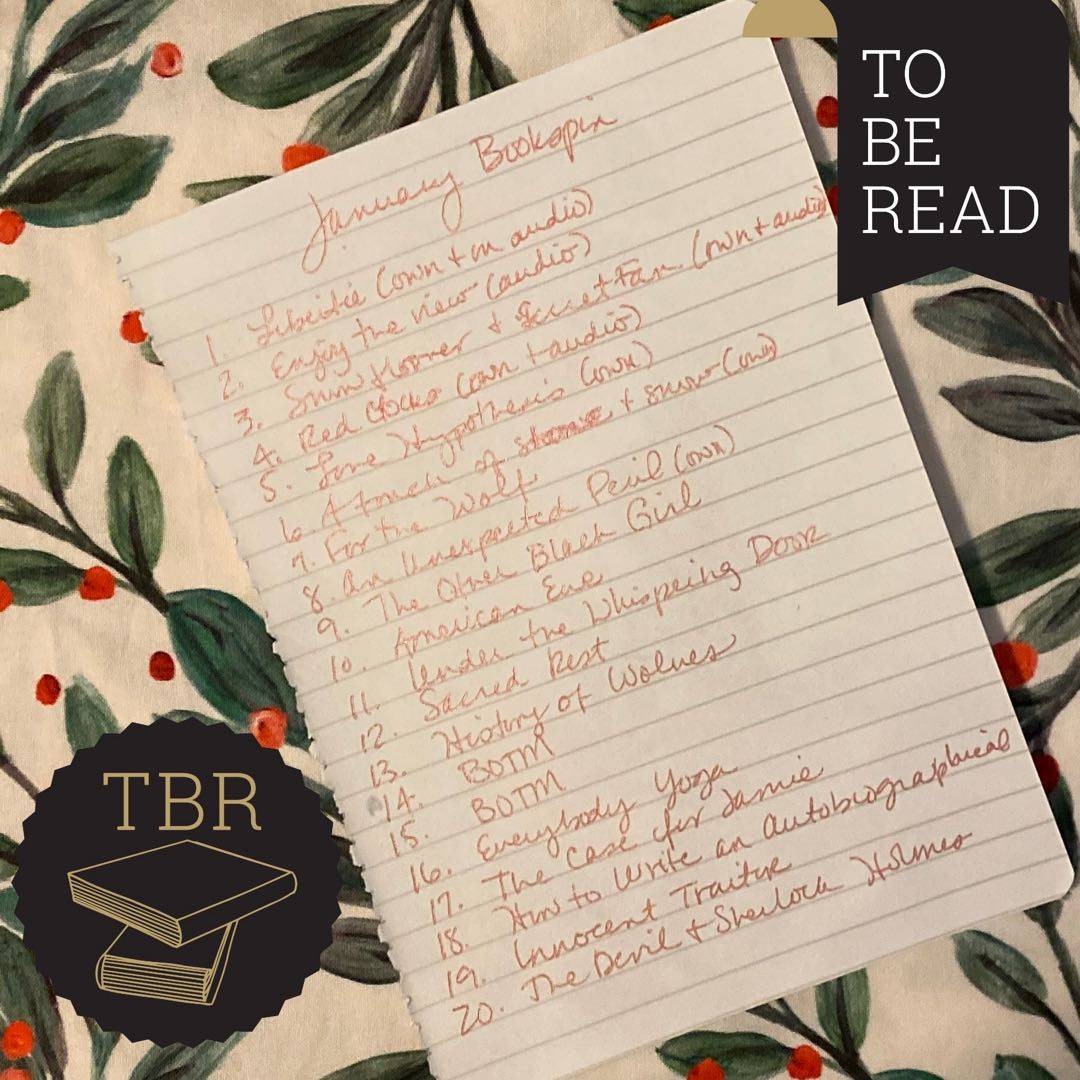 TO
BE
READ
January Bookspin
1. Libertie (own + on audio)
2. Enjoy the view (audio)
3. Snow Flower + Secret Fan (own + audio)
4. Red Clocks (own + audio)
5. Love Hypothesis (own)
6. A touch of stone + snow (own)
7. For the Wolf
8. An Unexpected Peril (own)
9. The Other Black Girl
10. American Eve
11. Under the Whispering Door
12. Sacred Rest
13. History of Wolves
14. BOTM
15. BOTM
16. Everybody Yoga
17. The Case for Jamie
18. How to Write an Autobiographical
19. Innocent Traitor
20. The Devil + Sherlock Holmes
TBR